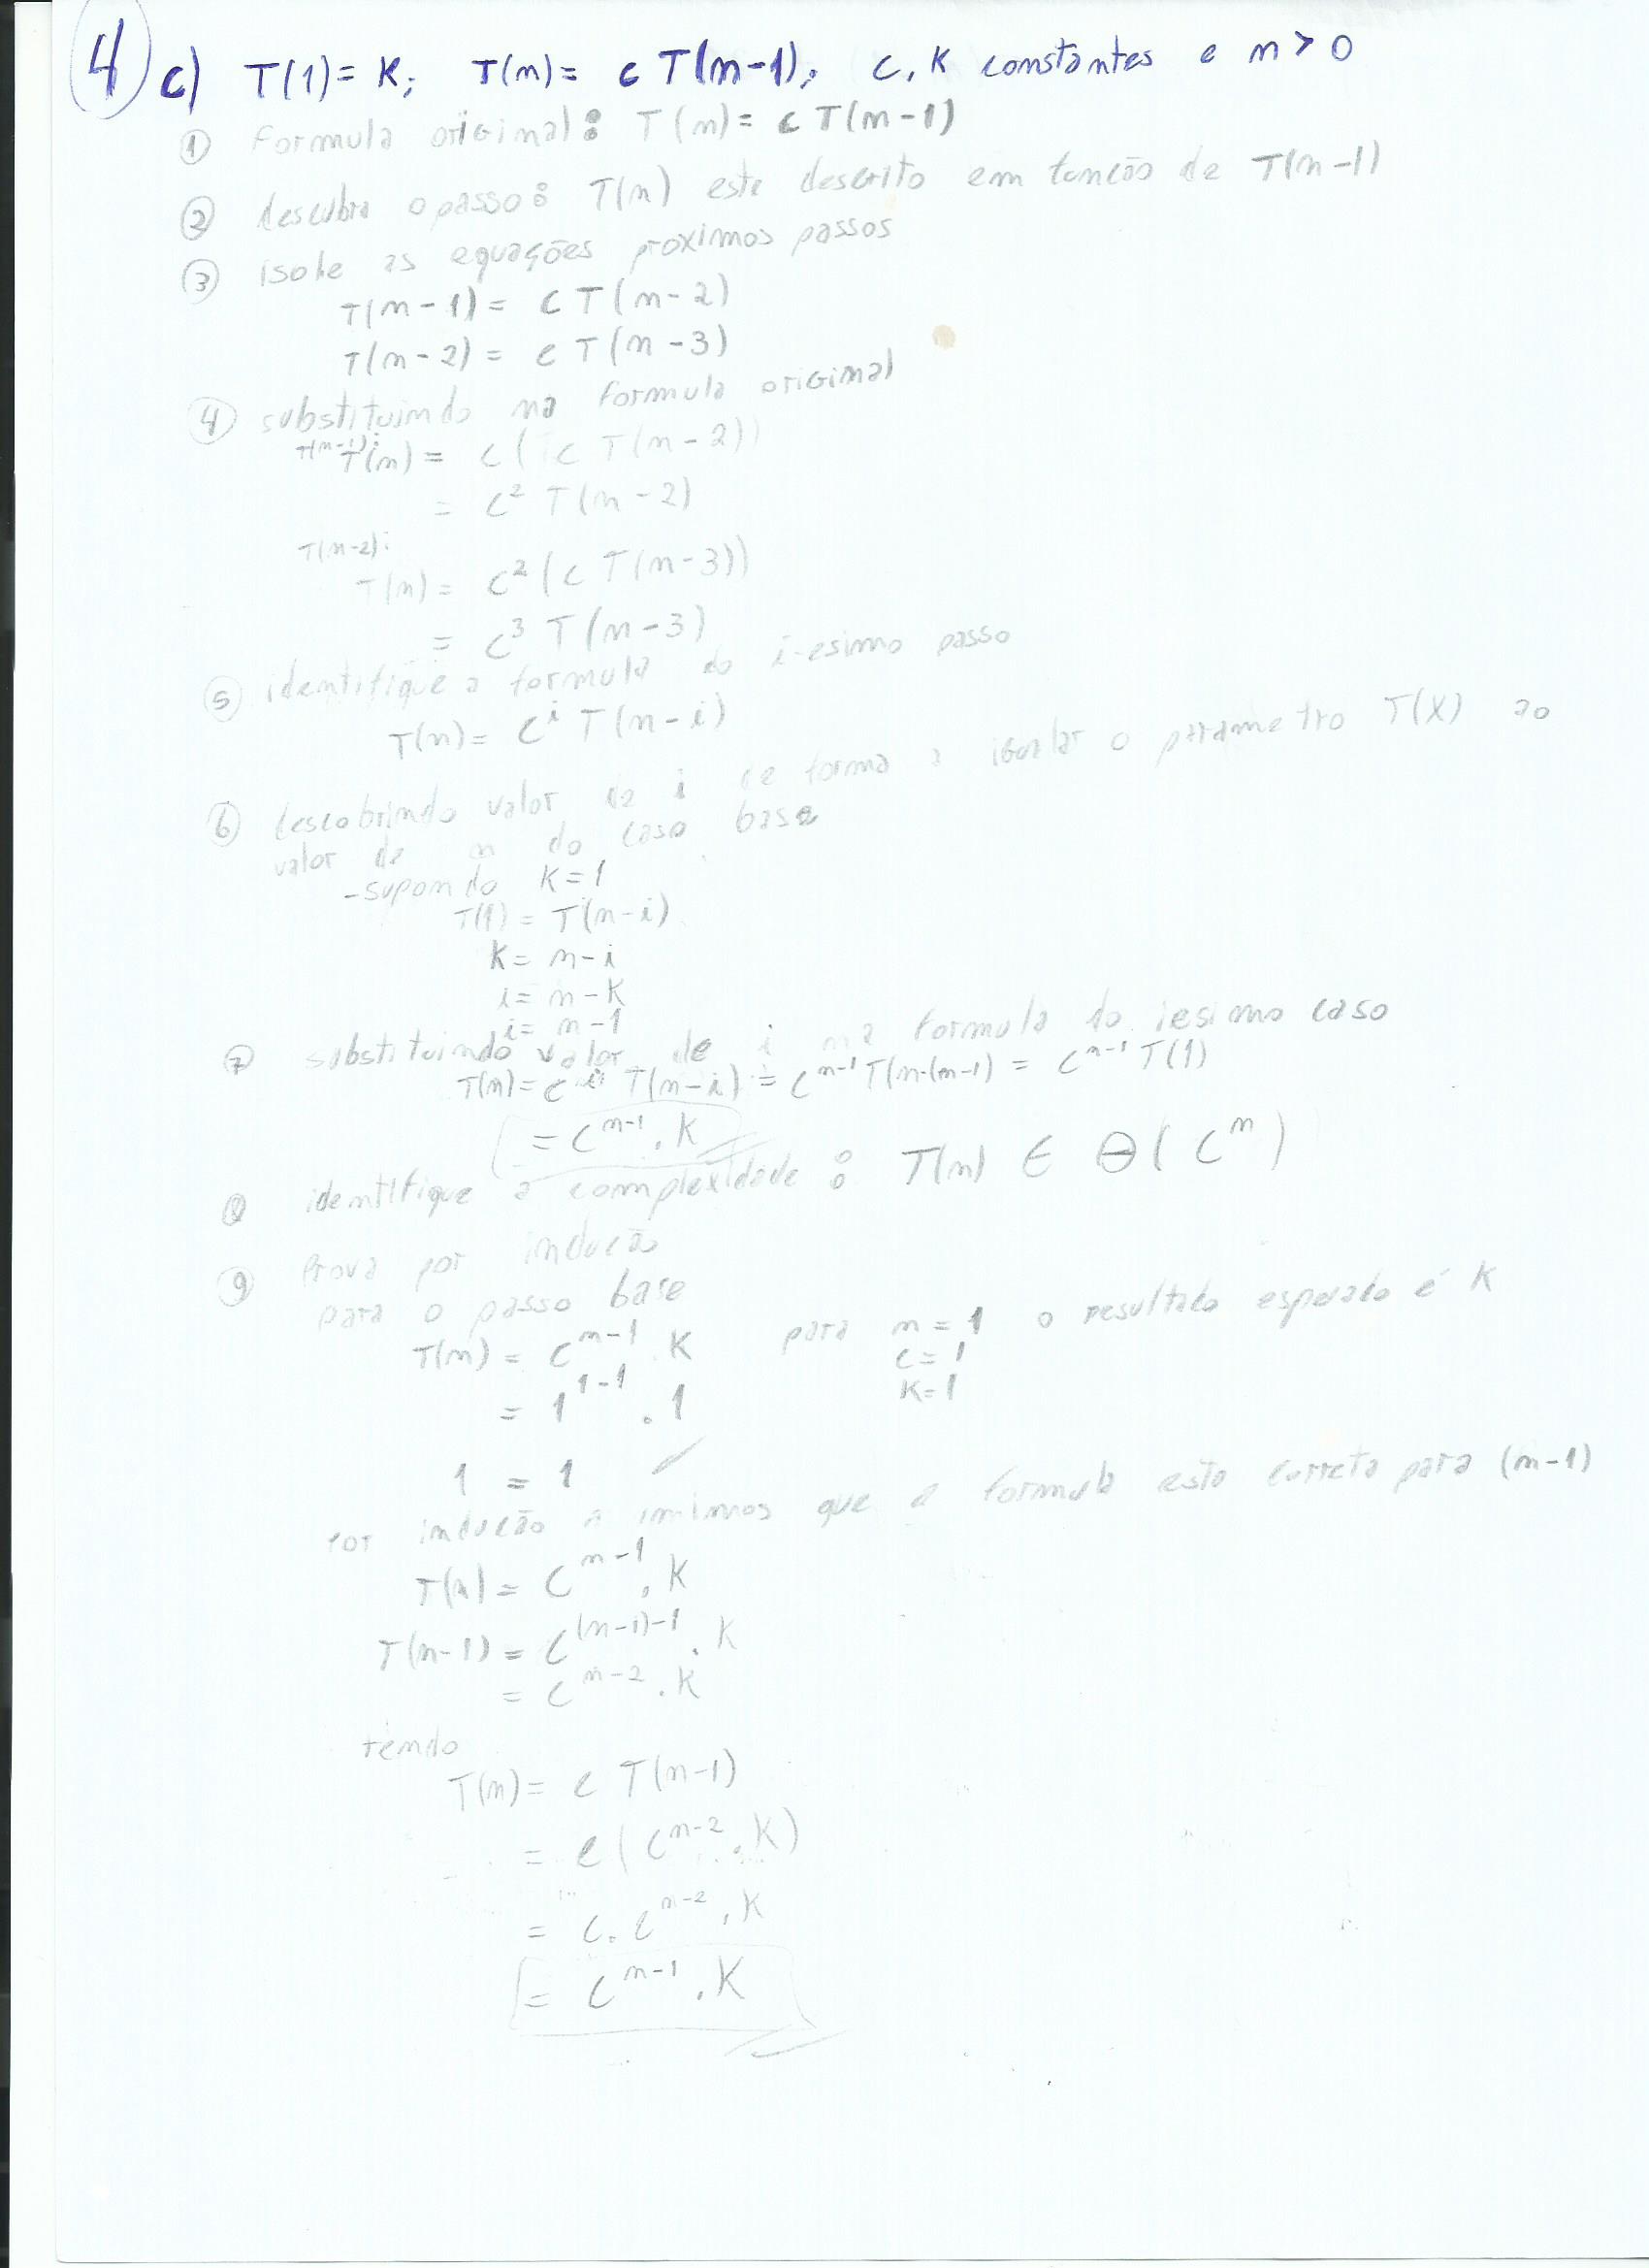 4 c) T(1) = K; T(n) = c T(n-1); c, K constantes e n > 0
① formula original: T(n) = c T(n-1)
② descubra o passo: T(n) este descrito em função de T(n-1)
③ isole as equações proximos passos
T(n-1) = c T(n-2)
T(n-2) = c T(n-3)
④ substituindo na formula original
T(n-1):
T(n) = c(c T(n-2))
= c² T(n-2)
T(n-2):
T(n) = c² (c T(n-3))
= c³ T(n-3)
⑤ identifique a formula do i-esimo passo
T(n) = c^i T(n-i)
⑥ descobrindo valor de i de forma a igualar o parametro T(X) ao
valor de n do caso base
- supondo K = 1
T(1) = T(n-i)
K = n-i
i = n-K
i = n-1
⑦ substituindo valor de i na formula do iesimo caso
T(n) = c^i T(n-i) = c^(n-1) T(n-(n-1)) = c^(n-1) T(1)
= c^(n-1) . K
⑧ identifique a complexidade: T(n) ∈ Θ(c^n)
⑨ Prova por indução
para o passo base
T(n) = c^(n-1) . K para n = 1 o resultado esperado é K
c = 1
= 1^(1-1) . 1 K = 1
1 = 1 ✓
Por indução que a formula esta correta para (n-1)
T(n) = c^(n-1) . K
T(n-1) = c^((n-1)-1) . K
= c^(n-2) . K
Tendo
T(n) = c T(n-1)
= c(c^(n-2) . K)
= c . c^(n-2) . K
= c^(n-1) . K